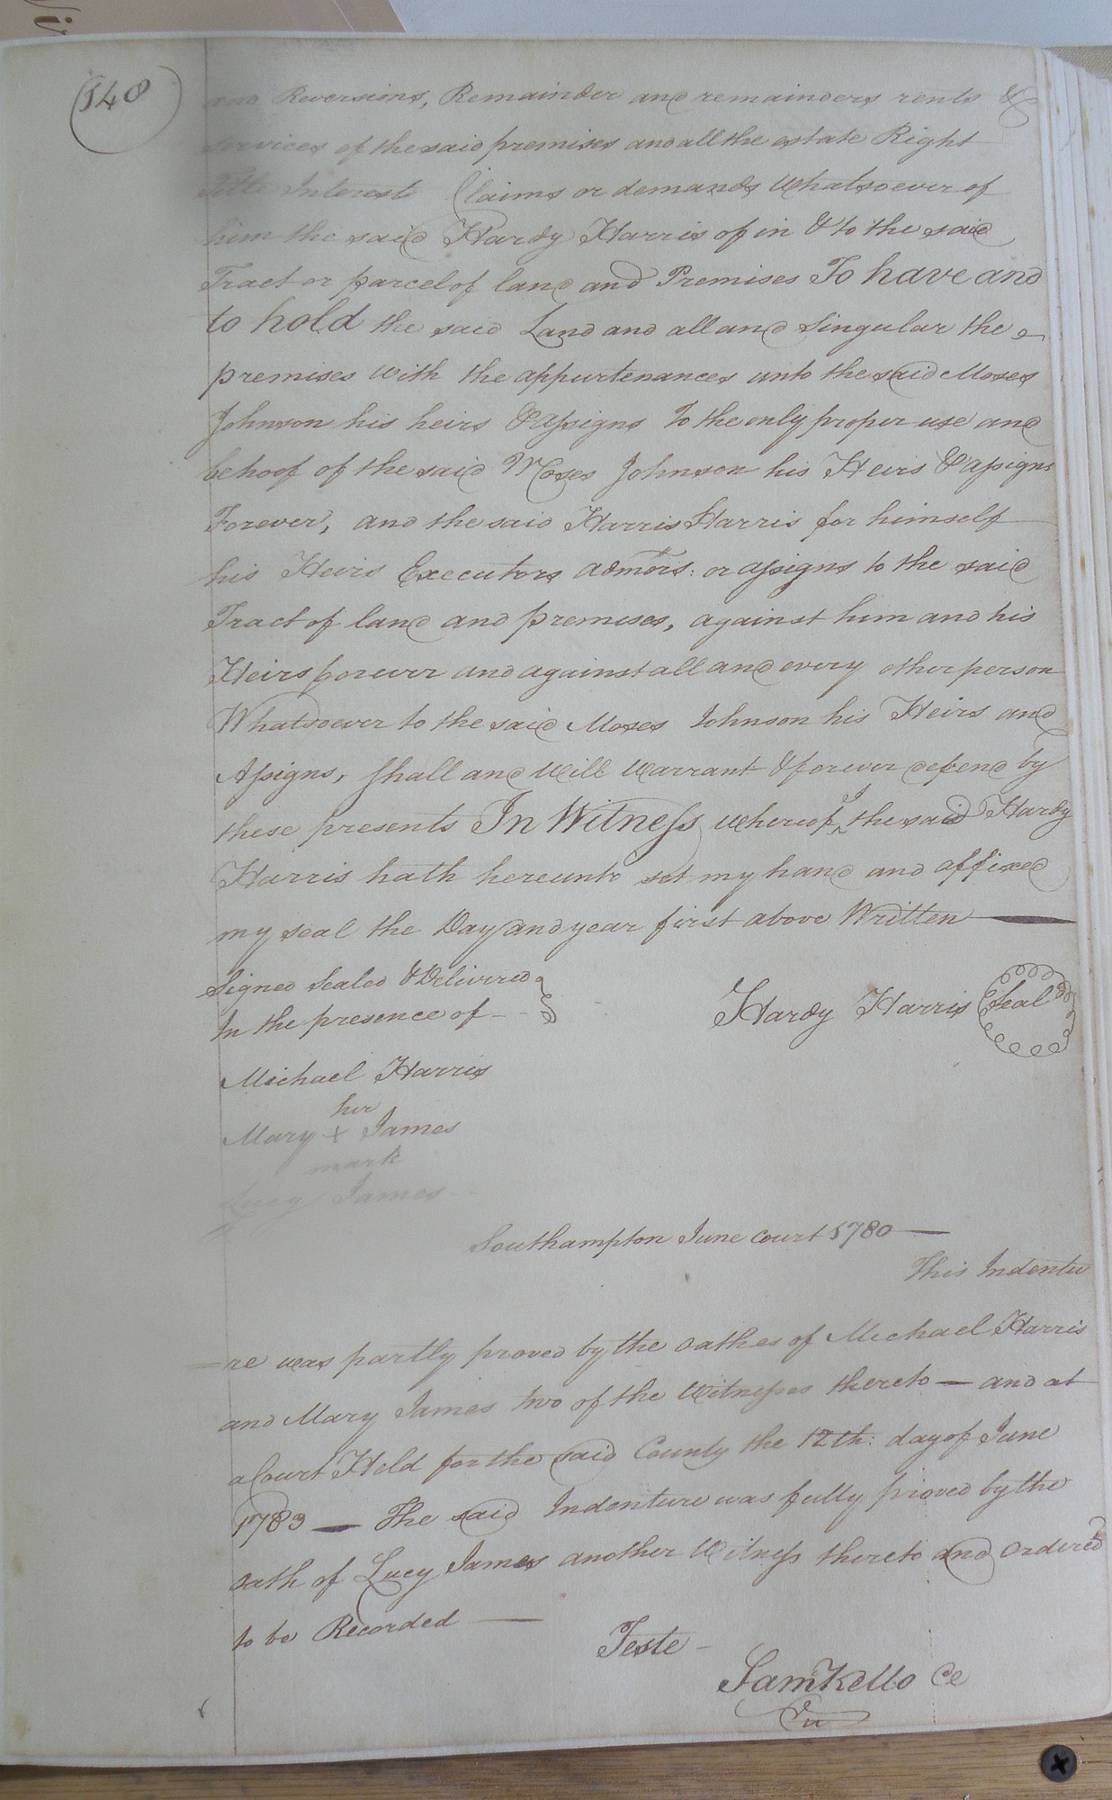 148
and Reversions, Remainder and remainders rents &
Services of the said premises and all the estate Right
Title Interest Claims or demands whatsoever of
him the said Hardy Harris of in & to the said
Tract or parcel of land and Premises To have and
to hold the said Land and all and Singular the
premises with the appurtenances unto the said Moses
Johnson his heirs & assigns To the only proper use and
behoof of the said Moses Johnson his Heirs & assigns
Forever, and the said Harris Harris for himself
his Heirs Executors admors: or assigns to the said
Tract of land and premises, against him and his
Heirs forever and against all and every other person
Whatsoever to the said Moses Johnson his Heirs and
Assigns, shall and Will Warrant & forever defend by
these presents In Witness whereof I the said Hardy
Harris hath hereunto set my hand and affixed
my seal the Day and year first above Written
Signed Sealed & Delivered
In the presence of
Hardy Harris Seal
Michael Harris
her
Mary + James
mark
Lucy James
Southampton June Court 1780
This Indentu
re was partly proved by the oathes of Michael Harris
and Mary James two of the Witnesses thereto — and at
a Court Held for the said County the 12th: day of June
1783 — The said Indenture was fully proved by the
oath of Lucy James another Witness thereto and Ordered
to be Recorded
Teste
Saml Kello Cl